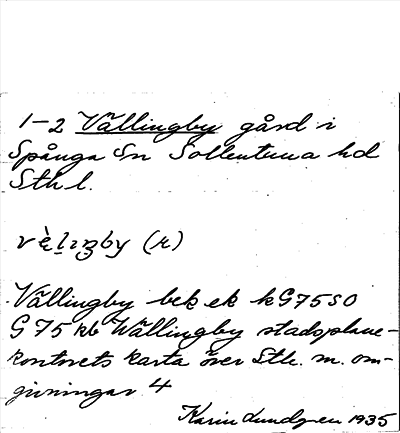 1-2 Vällingby gård i
Spånga Sn Sollentuna hd
Sth l.
vὲlɪŋby (r)
Vällingby bek ek kG75SO
G75 kb Wällingby stadsplane-
kontorets karta över Sth. m. om-
givningar 4
Karin Lundgren 1935